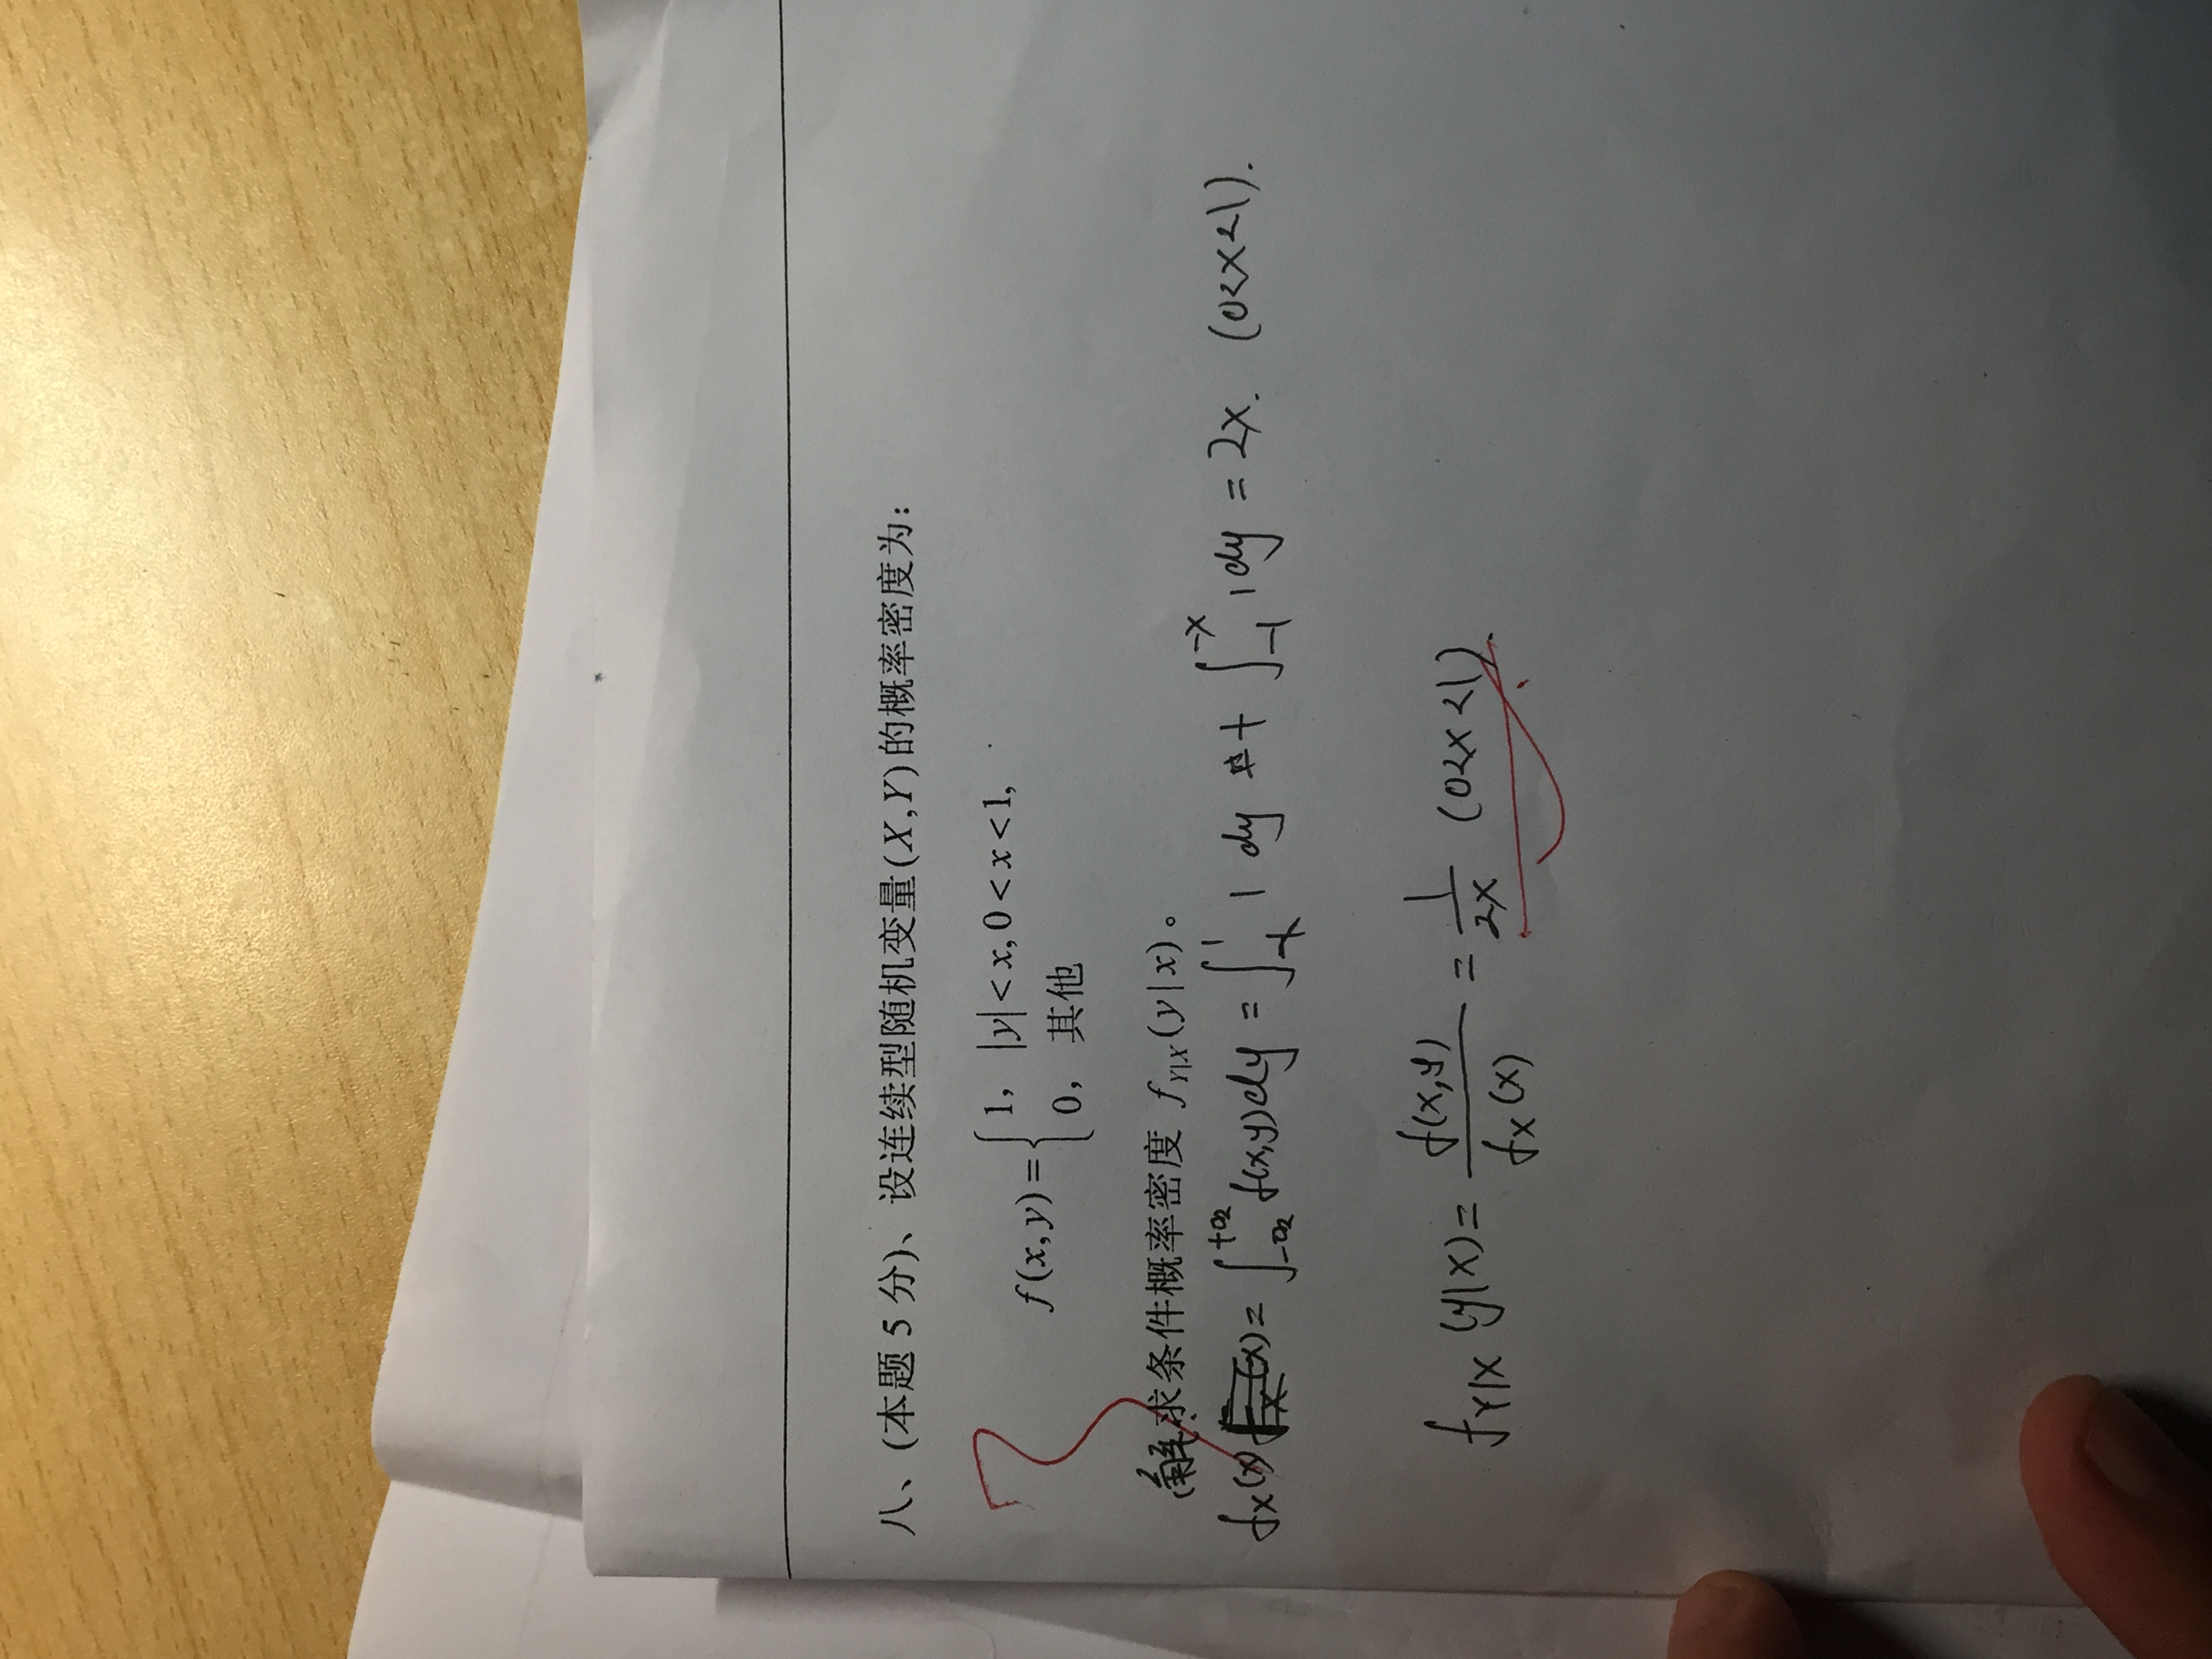 八、(本题 5 分)、设连续型随机变量(X,Y)的概率密度为:
f(x,y)={ 1, |y|<x,0<x<1,
0, 其他
解: 求条件概率密度 f_{Y|X}(y|x)。
f_X(x) = ∫_{-∞}^{+∞} f(x,y)dy = ∫_{-x}^{1} 1 dy + ∫_{-1}^{-x} 1 dy = 2x. (0<x<1).
f_{Y|X}(y|x) = f(x,y)/f_X(x) = 1/2x (0<x<1).